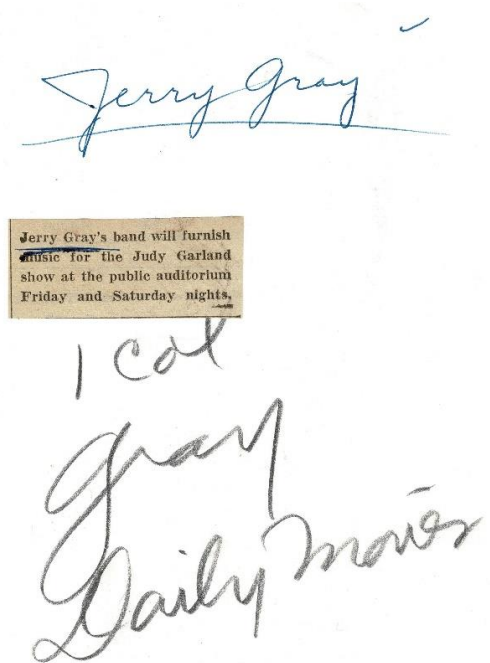 Jerry Gray
Jerry Gray's band will furnish
music for the Judy Garland
show at the public auditorium
Friday and Saturday nights.
1 Col
Gray
Daily Movies